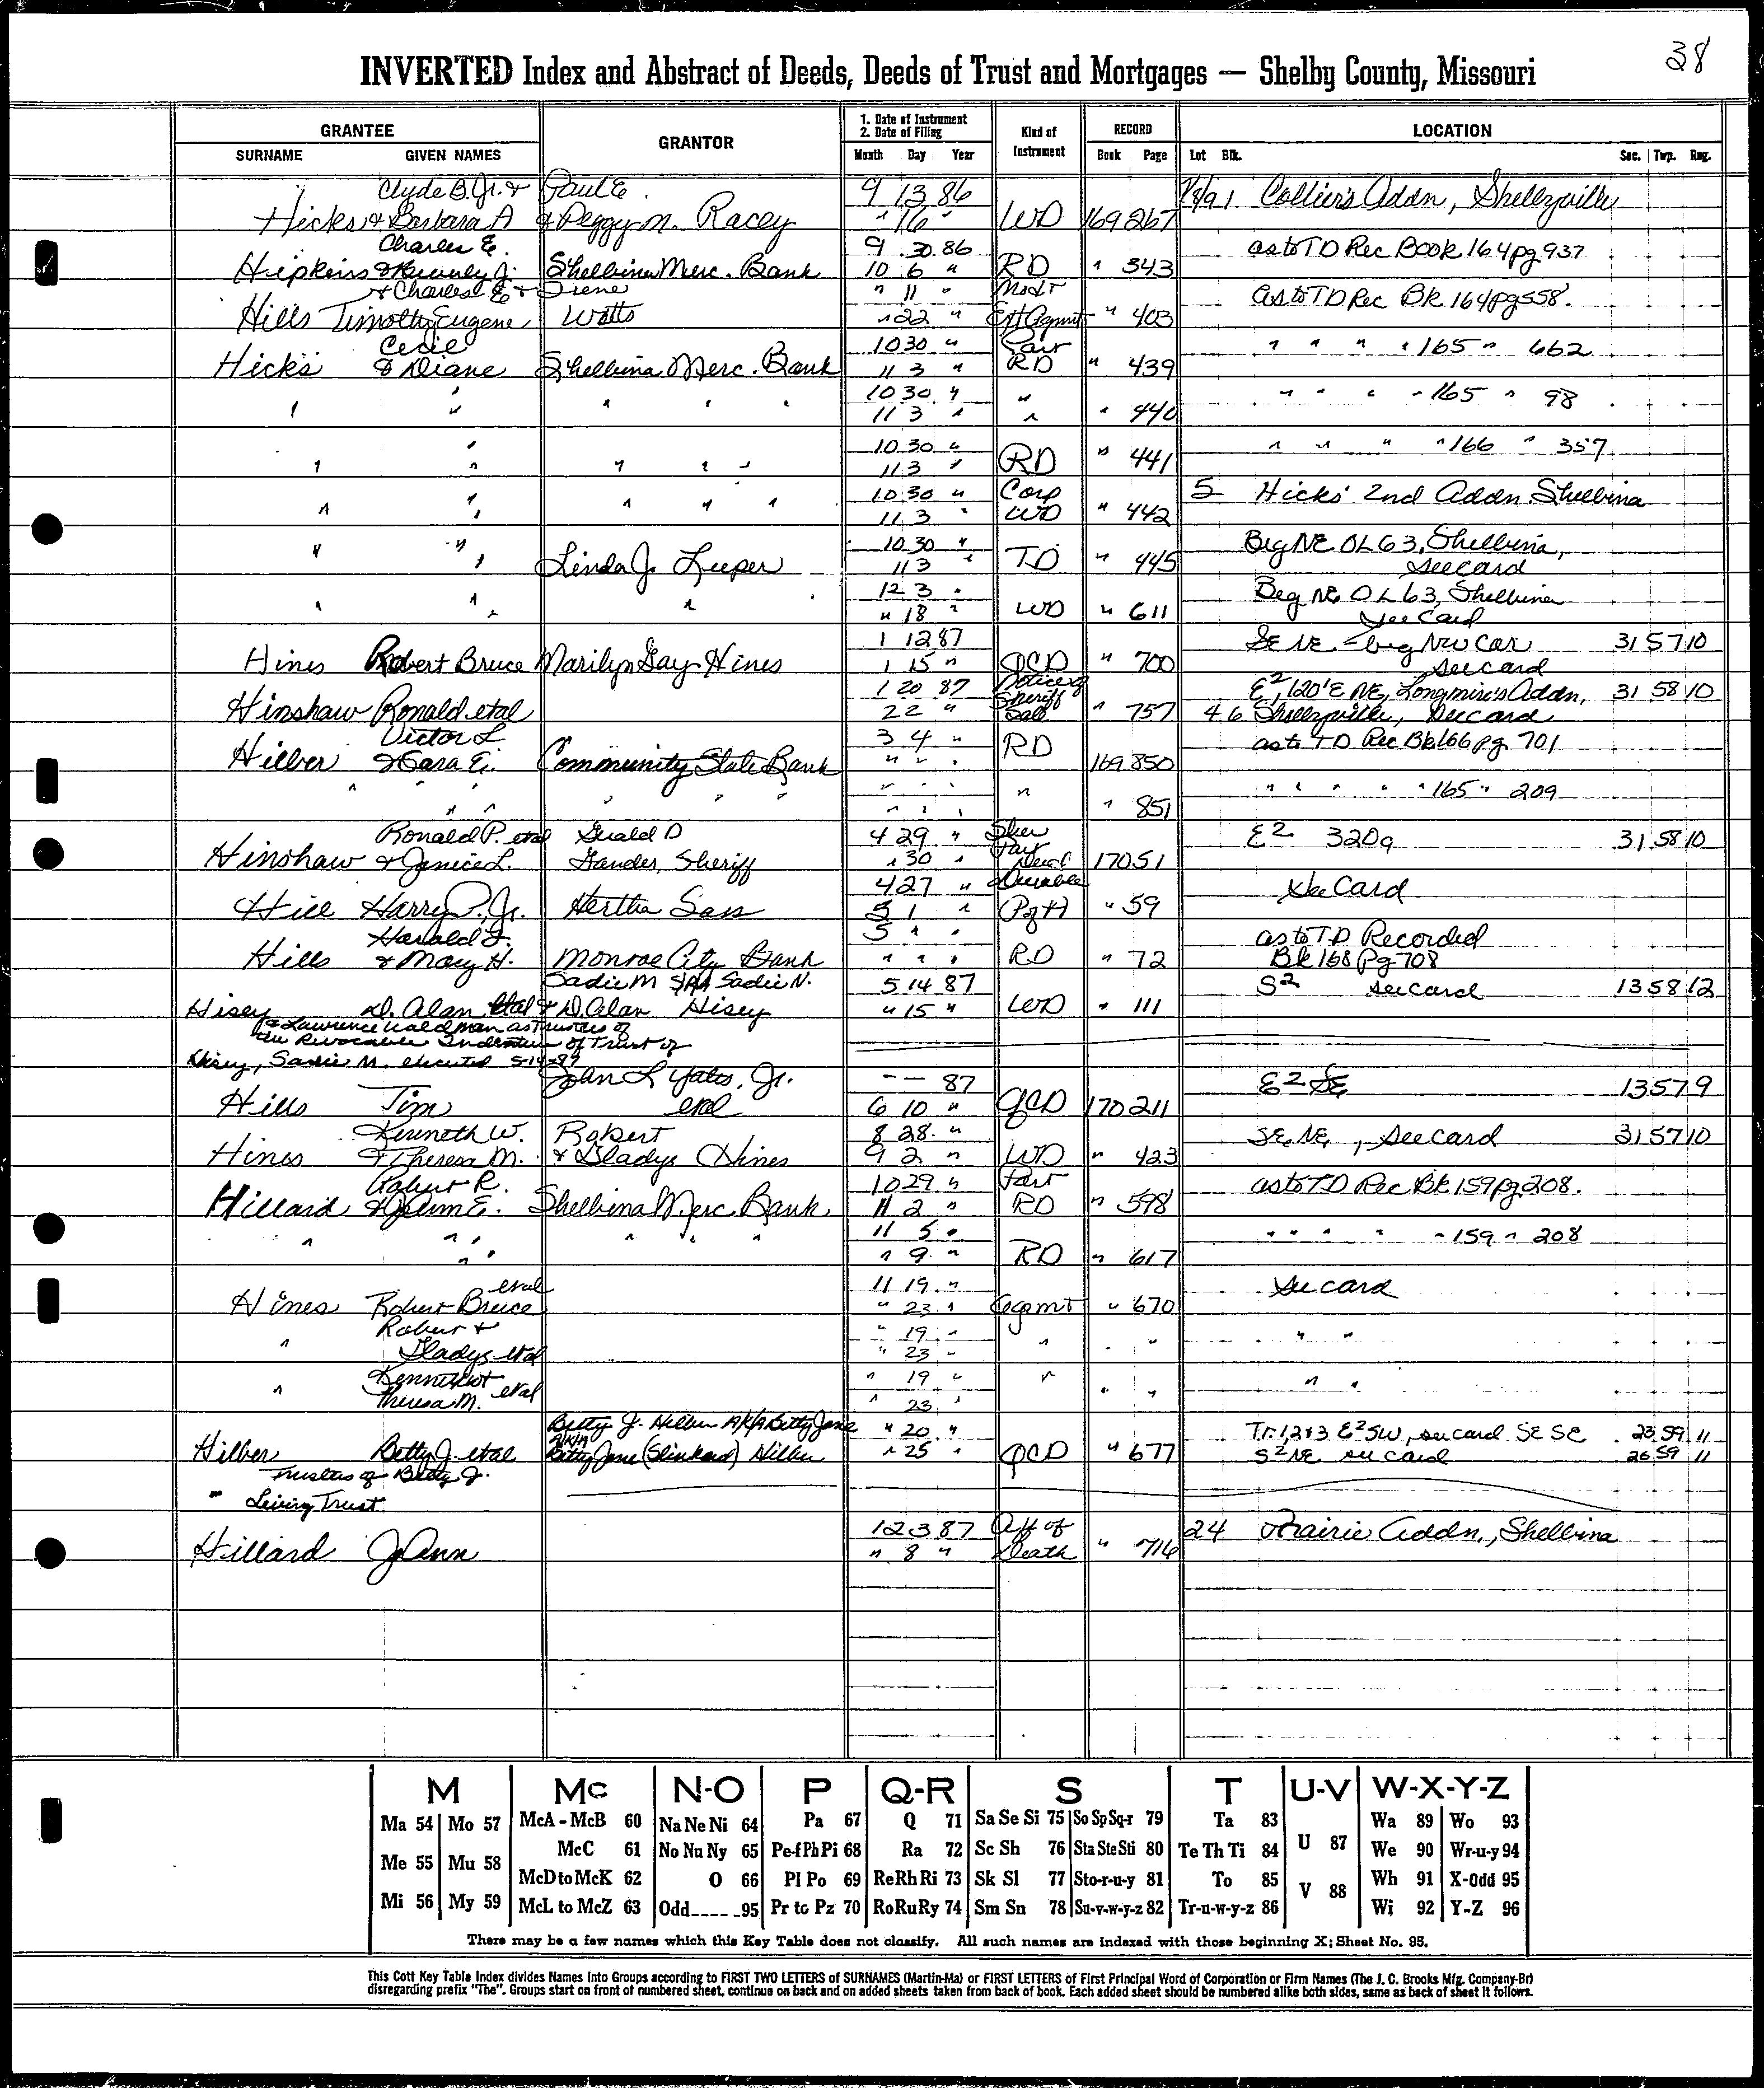 38
INVERTED Index and Abstract of Deeds, Deeds of Trust and Mortgages — Shelby County, Missouri
GRANTEE
SURNAME GIVEN NAMES
GRANTOR
1. Date of Instrument
2. Date of Filing
Month Day Year
Kind of Instrument
RECORD
Book Page
LOCATION
Lot Blk. Sec. Twp. Rng.
Clyde B. Jr. & Paul E. 9 13 86 Collier's Addn, Shelbyville
Hicks & Barbara A & Peggy M. Racey " 16 " WD 169 267
Charles E. 9 30 86 as to TD Rec Book 164 pg 937
Hipkins & Beverly J. Shelbina Merc. Bank 10 6 " RD " 343
& Charles E & Irene " 11 " Mod & as to TD Rec Bk 164 pg 558.
Hills Timothy Eugene Watts " 22 " Ext Agmnt " 403
Cecil 10 30 " Part " " " " 165 " 662
Hicks & Diane Shelbina Merc. Bank 11 3 " RD " 439
" 10 30 " " " " " " 165 " 98
" " " " " 11 3 " " " 440
" 10 30 " " " " " 166 " 357
" " " " " 11 3 " RD " 441
" 10 30 " Corp 5 Hicks' 2nd Addn Shelbina
" " " " " 11 3 " WD " 442
" " 10 30 " Beg NE OL 63, Shelbina,
" Linda J. Leeper 11 3 " TD " 445 see card
12 3 " Beg NE OL 63, Shelbina
" " " " 18 " WD " 611 see card
1 12 87 SE NE - beg NW Cor 31 57 10
Hines Robert Bruce Marilyn Gay Hines 1 15 " QCD " 700 see card
1 20 87 Notice of Sheriff Sale E², 120' E NE, Longmire's Addn, 31 58 10
Hinshaw Ronald etal 22 " " 757 4 6 Shelbyville, see card
Victor L 3 4 " RD as to TD Rec Bk 166 pg 701
Hilber & Cara E. Community State Bank " " " 169 850
" " " " " " " " " " " " " " 165 " 209
" " " " " " 851
Ronald P. etal Gerald D 4 29 " E² 320a 31 58 10
Hinshaw & Janice L. Gander, Sheriff " 30 " Deed 170 51
4 27 " Durable See Card
Hill Harry P., Jr. Hertha Sass 5 1 " P of A " 59
Harald J. 5 " " as to TD Recorded
Hills & Mary H. Monroe City Bank " " " RD " 72 Bk 168 Pg 708
Sadie M Sadie N. 5 14 87 S² see card 13 58 12
Hisey D. Alan etal & D. Alan Hisey " 15 " WD " 111
& Lawrence Waldman as Trustees of
the Revocable Indenture of Trust of
Hisey, Sadie M. executed 5-14-87
John L Yates, Jr. — — 87 E² SE 13 57 9
Hills Tim etal 6 10 " QCD 170 211
Kenneth W. Robert 8 28 " SE NE, see card 31 57 10
Hines & Theresa M. & Gladys Hines 9 2 " WD " 423
Robert R. 10 29 " Part as to TD Rec Bk 159 pg 208.
Hillard & JoAnn E. Shelbina Merc. Bank 11 2 " RD " 598
" " " " " " 11 5 " " " " " " 159 " 208
" " " 9 " RD " 617
etal 11 19 " see card
Hines Robert Bruce " 23 " Agmt " 670
Robert & " 19 " " "
" Gladys etal " 23 " " " "
Kenneth & " 19 " " " "
" Theresa M. etal " 23 " " "
Betty J. Hilber A/K/A Betty Jane " 20 " Tr. 1, 2 & 3 E² SW, see card SE SE 23 59 11
A/K/A
Hilber Betty J. etal Betty Jane (Slinkard) Hilber " 25 " QCD " 677 S² NE see card 26 59 11
Trustees of Betty J.
" Living Trust
12 3 87 Aff of 24 Prairie Addn., Shelbina
Hillard JoAnn " 8 " Death " 716
M Mc N-O P Q-R S T U-V W-X-Y-Z
Ma 54 Mo 57 McA - McB 60 Na Ne Ni 64 Pa 67 Q 71 Sa Se Si 75 So Sp Sq-r 79 Ta 83 Wa 89 Wo 93
McC 61 No Nu Ny 65 Pe-f Ph Pi 68 Ra 72 Sc Sh 76 Sta Ste Sti 80 Te Th Ti 84 U 87 We 90 Wr-u-y 94
Me 55 Mu 58 McD to McK 62 O 66 Pl Po 69 Re Rh Ri 73 Sk Sl 77 Sto-r-u-y 81 To 85 V 88 Wh 91 X-Odd 95
Mi 56 My 59 McL to McZ 63 Odd_ _ _ _ _95 Pr to Pz 70 Ro Ru Ry 74 Sm Sn 78 Su-v-w-y-z 82 Tr-u-w-y-z 86 Wi 92 Y-Z 96
There may be a few names which this Key Table does not classify. All such names are indexed with those beginning X; Sheet No. 95.
This Cott Key Table Index divides Names into Groups according to FIRST TWO LETTERS of SURNAMES (Martin-Ma) or FIRST LETTERS of First Principal Word of Corporation or Firm Names (The J. C. Brooks Mfg. Company-Br)
disregarding prefix "The". Groups start on front of numbered sheet, continue on back and on added sheets taken from back of book. Each added sheet should be numbered alike both sides, same as back of sheet it follows.